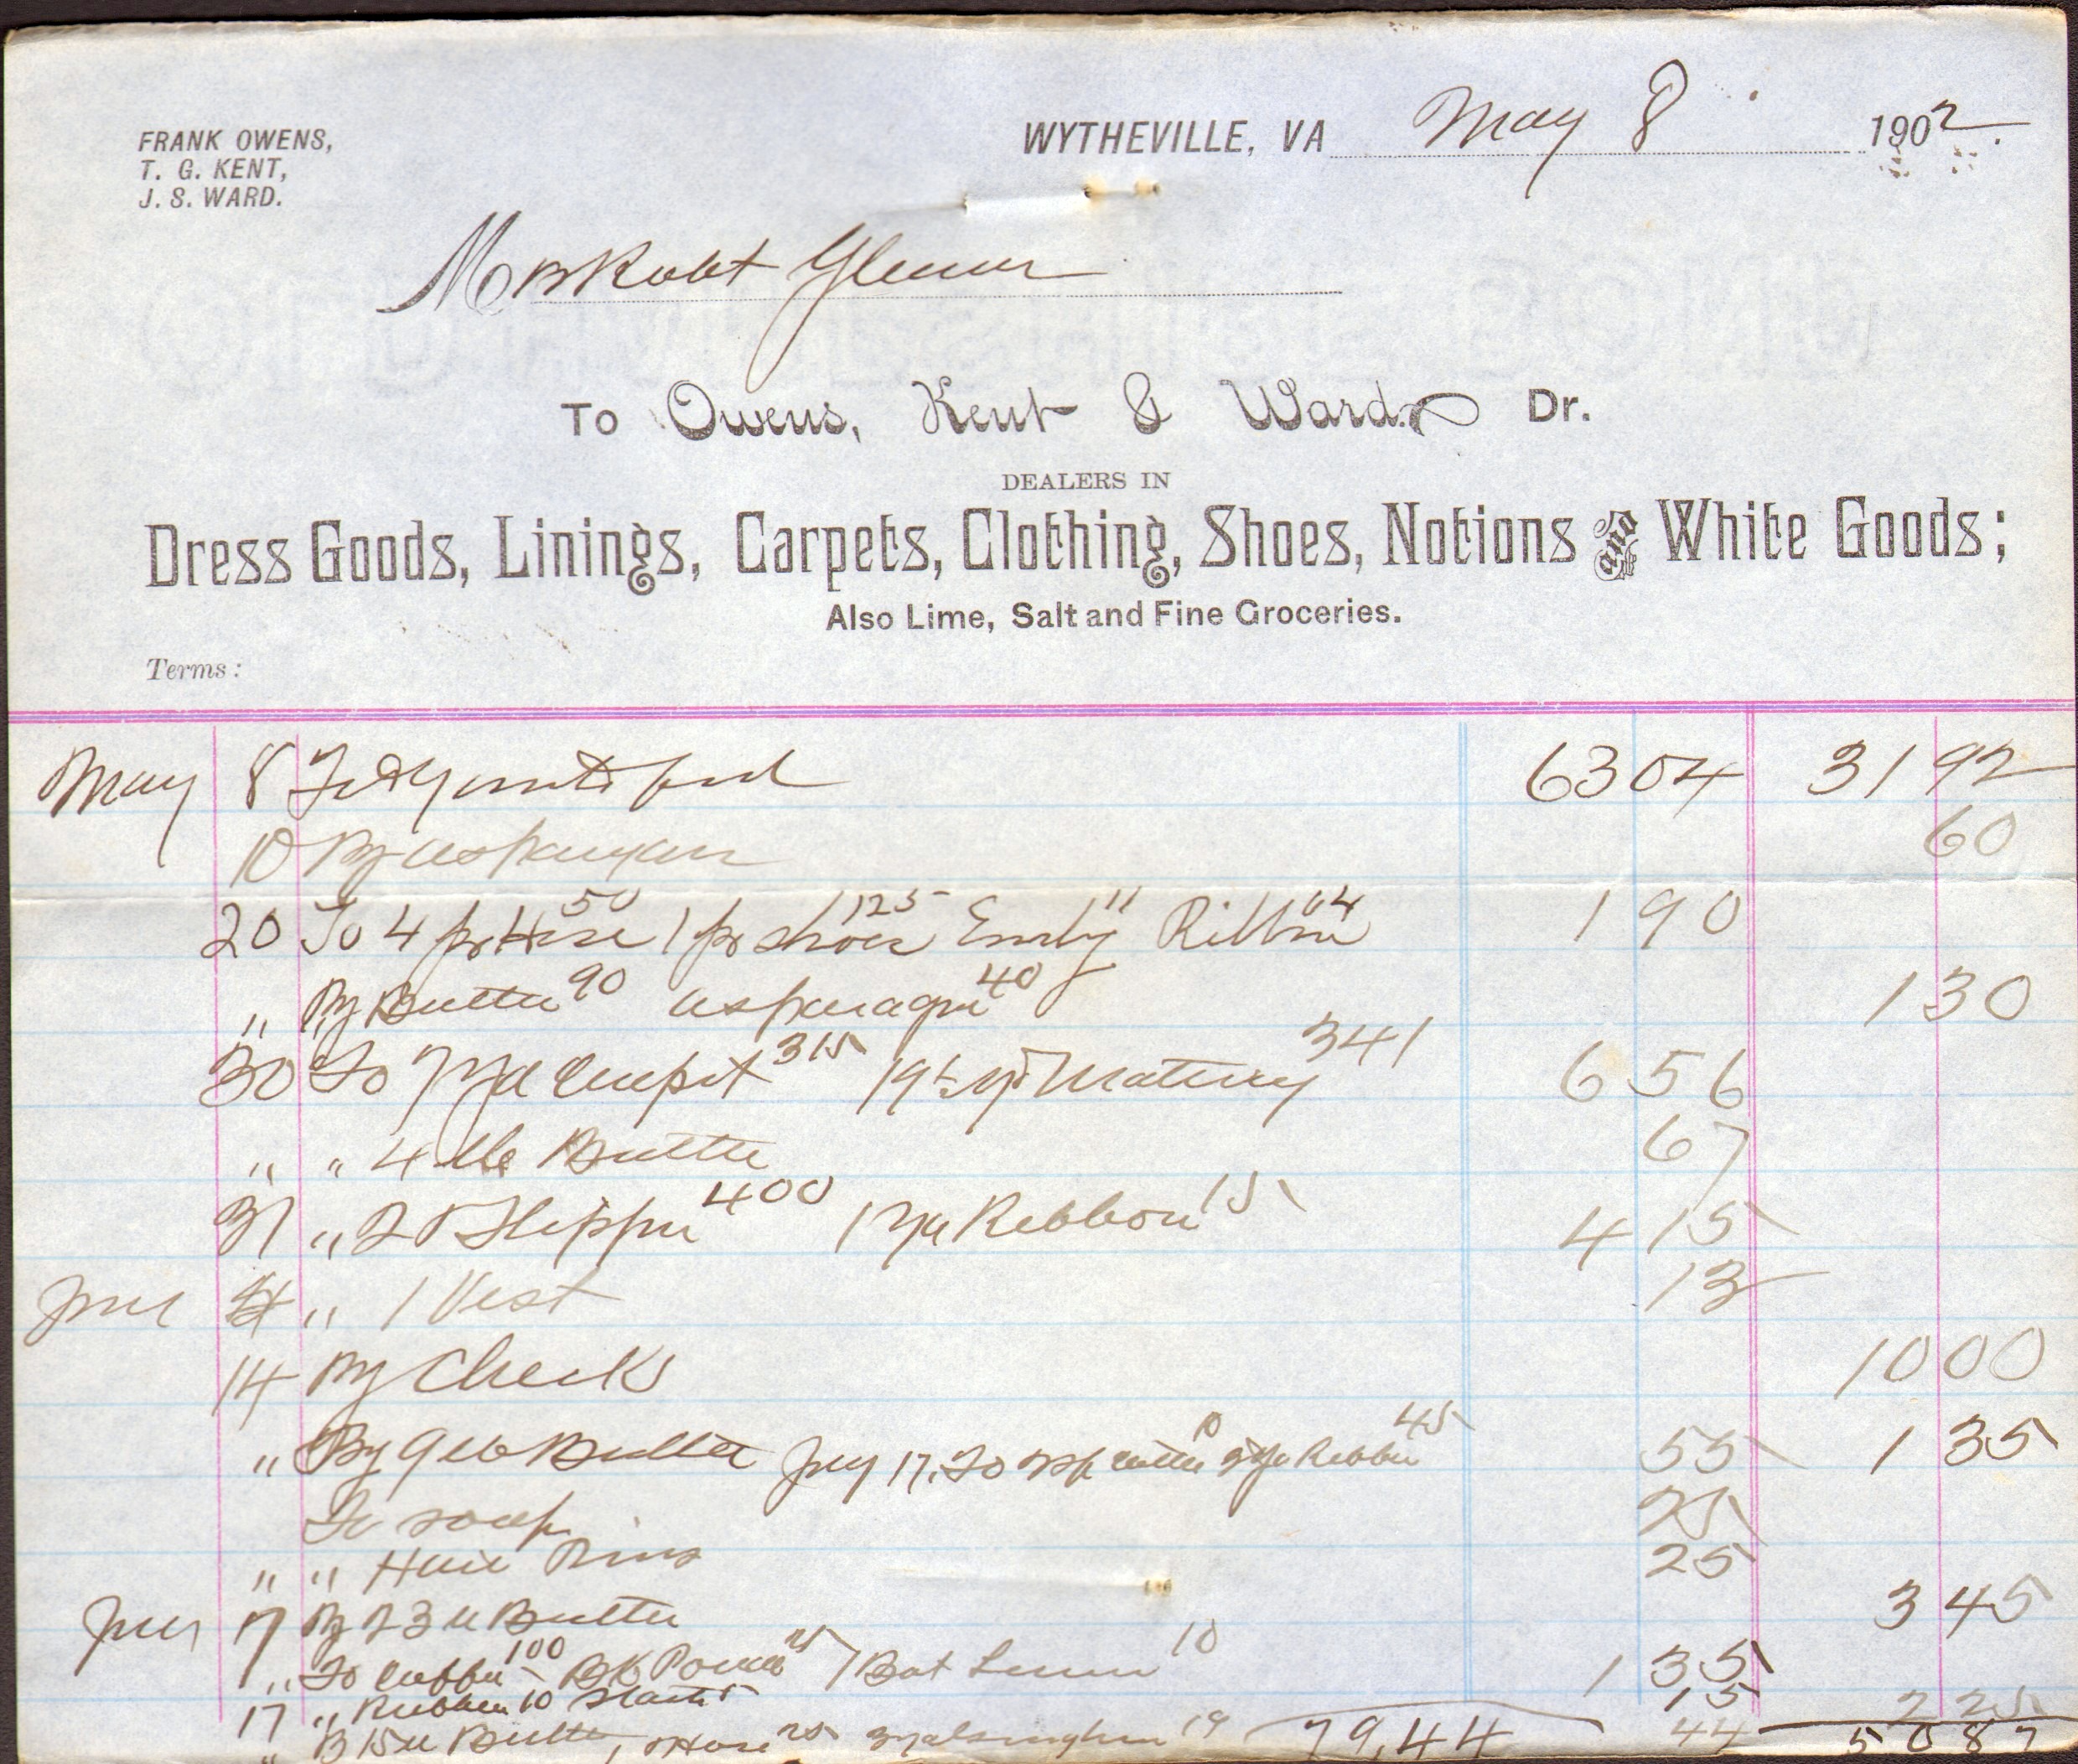 FRANK OWENS,
T. G. KENT,
J. S. WARD.
WYTHEVILLE, VA May 8 1902.
M Robt
To Owens, Kent & Ward. Dr.
DEALERS IN
Dress Goods, Linings, Carpets, Clothing, Shoes, Notions and White Goods;
Also Lime, Salt and Fine Groceries.
Terms:
May 8 To 63 04 31 92
10 By 60
20 To 4 pr Hose 50 1 pr shoes 125 11 Ribbon 04 1 90
" By Butter 90 asparagus 40 1 30
30 To 7 yd Carpet 315 19½ yd Matting 341 6 56
" " 4 lb Butter 67
31 " 2 Slippers 400 1 yd Ribbon 15 4 15
June 4 " 1 Vest 13
14 By Check 10 00
" By 9 lb Butter 17, To 10 Ribbon 45 55 1 35
To soap 25
" " Hair Pins 25
June 17 By 23 lb Butter 3 45
" To 100 BK Powder 25 1 Bot 10 1 35
17 " Rubber 10 Starch 5 15 2 25
" B 15 lb Butter, Hose 25 19 79,44 44 50 87